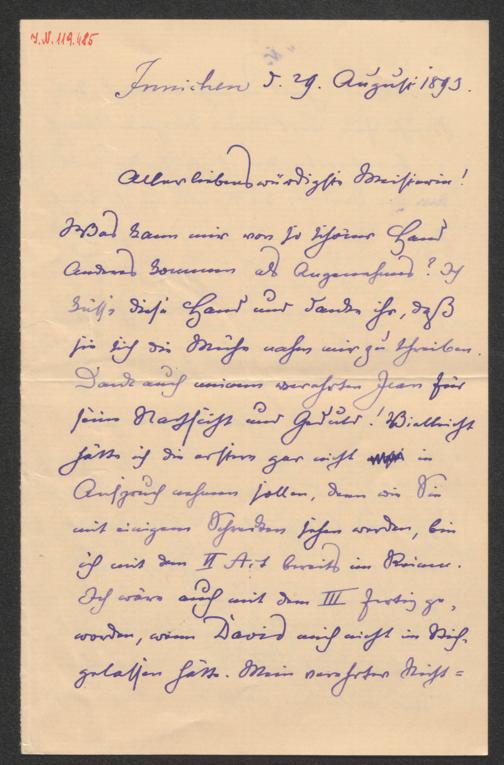 I.N. 119.485
Innichen d. 29. August 1893.
Allerliebenswürdigste Meisterin!
Was kann mir von so schöner Hand
Anderes kommen als Angenehmes? Ich
küsse diese Hand und danke ihr, daß
sie sich die Mühe nahm mir zu schreiben.
Dank auch meinem verehrten Jean für
seine Nachsicht und Geduld! Vielleicht
hätte ich die erstere gar nicht in
Anspruch nehmen sollen, denn wie Sie
mit einigem Schrecken sehen werden, bin
ich mit dem II Act bereits im Reinen.
Ich wäre auch mit dem III fertig ge-
worden, wenn David mich nicht im Stich
gelassen hätte. Mein verehrter Nicht=